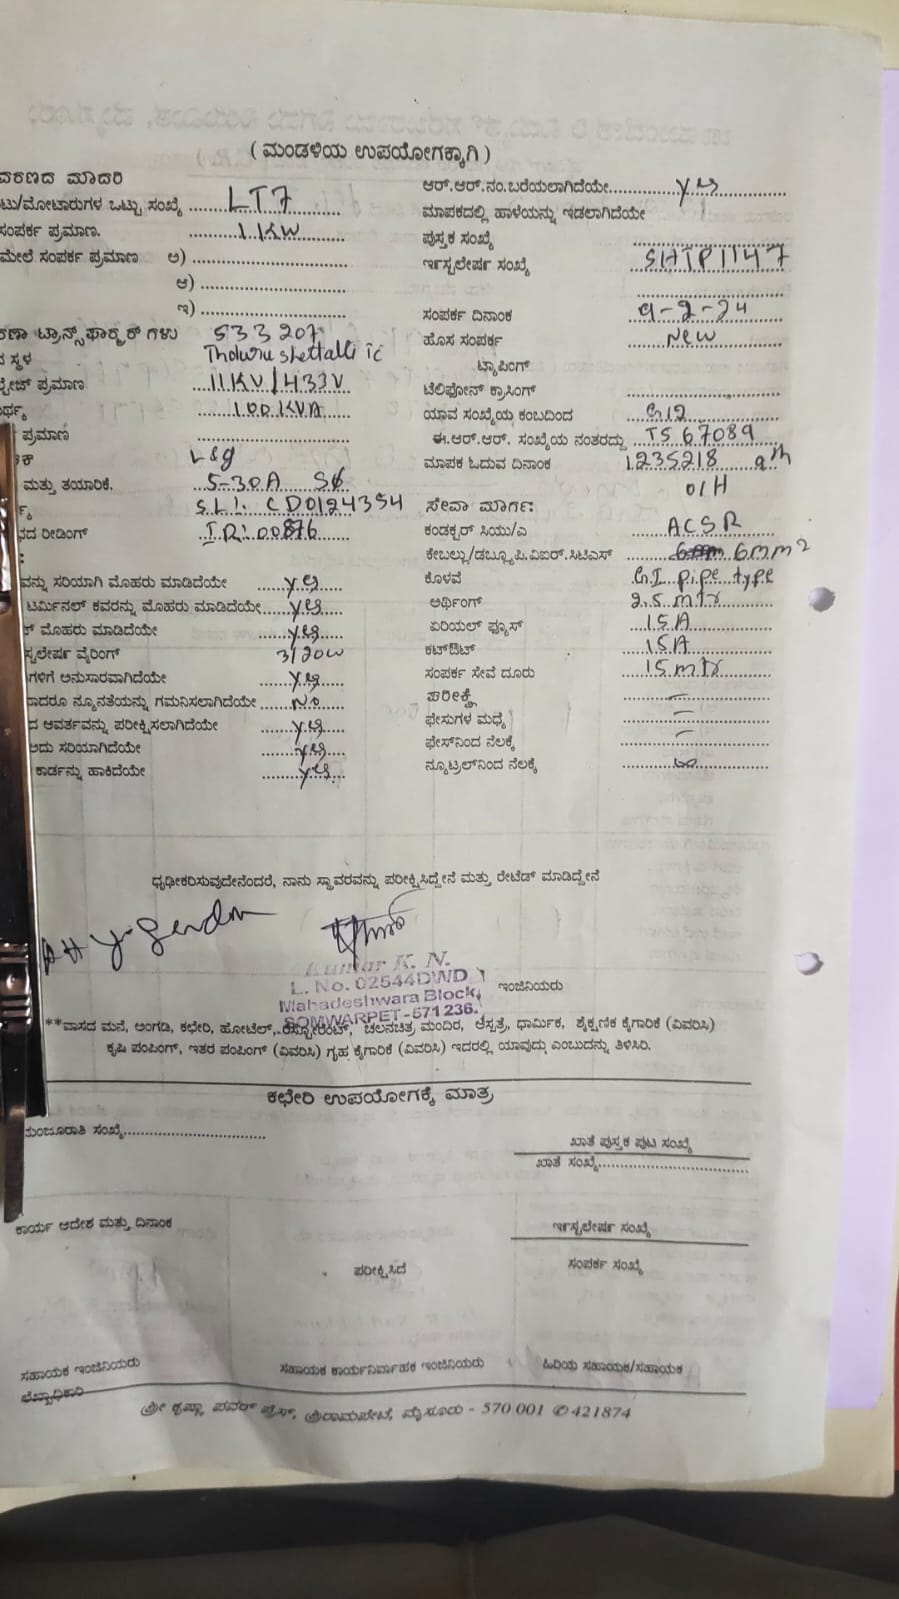 ( ಮಂಡಳಿಯ ಉಪಯೋಗಕ್ಕಾಗಿ )
ವಿವರಣದ ಮಾದರಿ
ಟು/ಮೋಟಾರುಗಳ ಒಟ್ಟು ಸಂಖ್ಯೆ LT7
ಸಂಪರ್ಕ ಪ್ರಮಾಣ. 1.KW
ಮೇಲೆ ಸಂಪರ್ಕ ಪ್ರಮಾಣ ಅ)
ಆ)
ಇ)
ಟ್ರಾನ್ಸ್‌ಫಾರ್ಮರ್ ಗಳು 533207
ಸ್ಥಳ Tholuru shettalli ic
ಪ್ರಮಾಣ 11KV/433V
100 KVA
ಪ್ರಮಾಣ
L&g
ಮತ್ತು ತಯಾರಿಕೆ. 5-30A SØ
S.L.I. CD0124354
ರೀಡಿಂಗ್ IR:00876
ವನ್ನು ಸರಿಯಾಗಿ ಮೊಹರು ಮಾಡಿದೆಯೇ yes
ಟರ್ಮಿನಲ್ ಕವರನ್ನು ಮೊಹರು ಮಾಡಿದೆಯೇ yes
ಮೊಹರು ಮಾಡಿದೆಯೇ yes
ಸ್ಟಲೇಷರ್ ವೈರಿಂಗ್ 3/20w
ಗಳಿಗೆ ಅನುಸಾರವಾಗಿದೆಯೇ yes
ದಾದರೂ ನ್ಯೂನತೆಯನ್ನು ಗಮನಿಸಲಾಗಿದೆಯೇ No
ದ ಆವರ್ತವನ್ನು ಪರೀಕ್ಷಿಸಲಾಗಿದೆಯೇ yes
ಅದು ಸರಿಯಾಗಿದೆಯೇ yes
ಕಾರ್ಡನ್ನು ಹಾಕಿದೆಯೇ yes
ಆರ್.ಆರ್.ನಂ.ಬರೆಯಲಾಗಿದೆಯೇ yes
ಮಾಪಕದಲ್ಲಿ ಹಾಳೆಯನ್ನು ಇಡಲಾಗಿದೆಯೇ
ಪುಸ್ತಕ ಸಂಖ್ಯೆ
ಇನ್ಸ್ಟಲೇಷರ್ ಸಂಖ್ಯೆ SHTP1147
ಸಂಪರ್ಕ ದಿನಾಂಕ 9-2-24
ಹೊಸ ಸಂಪರ್ಕ New
ಟ್ಯಾಪಿಂಗ್
ಟೆಲಿಫೋನ್ ಕ್ರಾಸಿಂಗ್
ಯಾವ ಸಂಖ್ಯೆಯ ಕಂಬದಿಂದ G12
ಈ.ಆರ್.ಆರ್. ಸಂಖ್ಯೆಯ ನಂತರದ್ದು TS 67089
ಮಾಪಕ ಓದುವ ದಿನಾಂಕ 1235218 9th
ಸೇವಾ ಮಾರ್ಗ: O/H
ಕಂಡಕ್ಟರ್ ಸಿಯು/ಎ ACSR
ಕೇಬಲ್ಲು/ಡಬ್ಲ್ಯೂ.ಪಿ.ವಿ.ಐರ್.ಸಿಟಿಎಸ್ 6mm2
ಕೊಳವೆ G.I pipe type
ಅರ್ಥಿಂಗ್ 2.5 mtr
ಏರಿಯಲ್ ಫ್ಯೂಸ್ 15A
ಕಟ್‌ಔಟ್ 15A
ಸಂಪರ್ಕ ಸೇವೆ ದೂರು 15 mtr
ಪರೀಕ್ಷೆ
ಫೇಸುಗಳ ಮಧ್ಯೆ
ಫೇಸ್‌ನಿಂದ ನೆಲಕ್ಕೆ
ನ್ಯೂಟ್ರಲ್‌ನಿಂದ ನೆಲಕ್ಕೆ
ಧೃಢೀಕರಿಸುವುದೇನೆಂದರೆ, ನಾನು ಸ್ಥಾವರವನ್ನು ಪರೀಕ್ಷಿಸಿದ್ದೇನೆ ಮತ್ತು ರೇಟೆಡ್ ಮಾಡಿದ್ದೇನೆ
Kumar K. N.
L. No. 02544DWD
Mahadeshwara Block,
SOMWARPET-571 236.
ಇಂಜಿನಿಯರು
**ವಾಸದ ಮನೆ, ಅಂಗಡಿ, ಕಛೇರಿ, ಹೋಟೆಲ್, ರೆಸ್ಟೋರೆಂಟ್, ಚಲನಚಿತ್ರ ಮಂದಿರ, ಆಸ್ಪತ್ರೆ, ಧಾರ್ಮಿಕ, ಶೈಕ್ಷಣಿಕ ಕೈಗಾರಿಕೆ (ವಿವರಿಸಿ)
ಕೃಷಿ ಪಂಪಿಂಗ್, ಇತರ ಪಂಪಿಂಗ್ (ವಿವರಿಸಿ) ಗೃಹ ಕೈಗಾರಿಕೆ (ವಿವರಿಸಿ) ಇದರಲ್ಲಿ ಯಾವುದು ಎಂಬುದನ್ನು ತಿಳಿಸಿರಿ.
ಕಛೇರಿ ಉಪಯೋಗಕ್ಕೆ ಮಾತ್ರ
ಮಂಜೂರಾತಿ ಸಂಖ್ಯೆ
ಖಾತೆ ಪುಸ್ತಕ ಪುಟ ಸಂಖ್ಯೆ
ಖಾತೆ ಸಂಖ್ಯೆ
ಕಾರ್ಯ ಆದೇಶ ಮತ್ತು ದಿನಾಂಕ
ಇನ್ಸ್ಟಲೇಷರ್ ಸಂಖ್ಯೆ
ಪರೀಕ್ಷಿಸಿದ
ಸಂಪರ್ಕ ಸಂಖ್ಯೆ
ಸಹಾಯಕ ಇಂಜಿನಿಯರು
ಸಹಾಯಕ ಕಾರ್ಯನಿರ್ವಾಹಕ ಇಂಜಿನಿಯರು
ಹಿರಿಯ ಸಹಾಯಕ/ಸಹಾಯಕ
ಲೆಖ್ಖಾಧಿಕಾರಿ
ಶ್ರೀ ಕೃಷ್ಣಾ ಪವರ್ ಪ್ರೆಸ್, ಶ್ರೀರಾಮಪೇಟೆ, ಮೈಸೂರು - 570 001 ✆ 421874